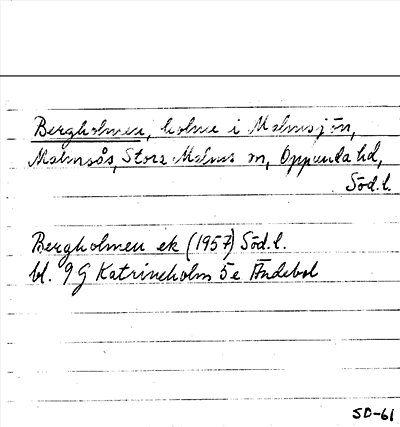 Bergholmen, holme i Malmsjön,
Malmsås, Stora Malms sn, Oppunda hd,
Söd.l.
Bergholmen ek (1957) Söd.l.
bl. 9 G Katrineholm 5 e Ändebol
SD-61